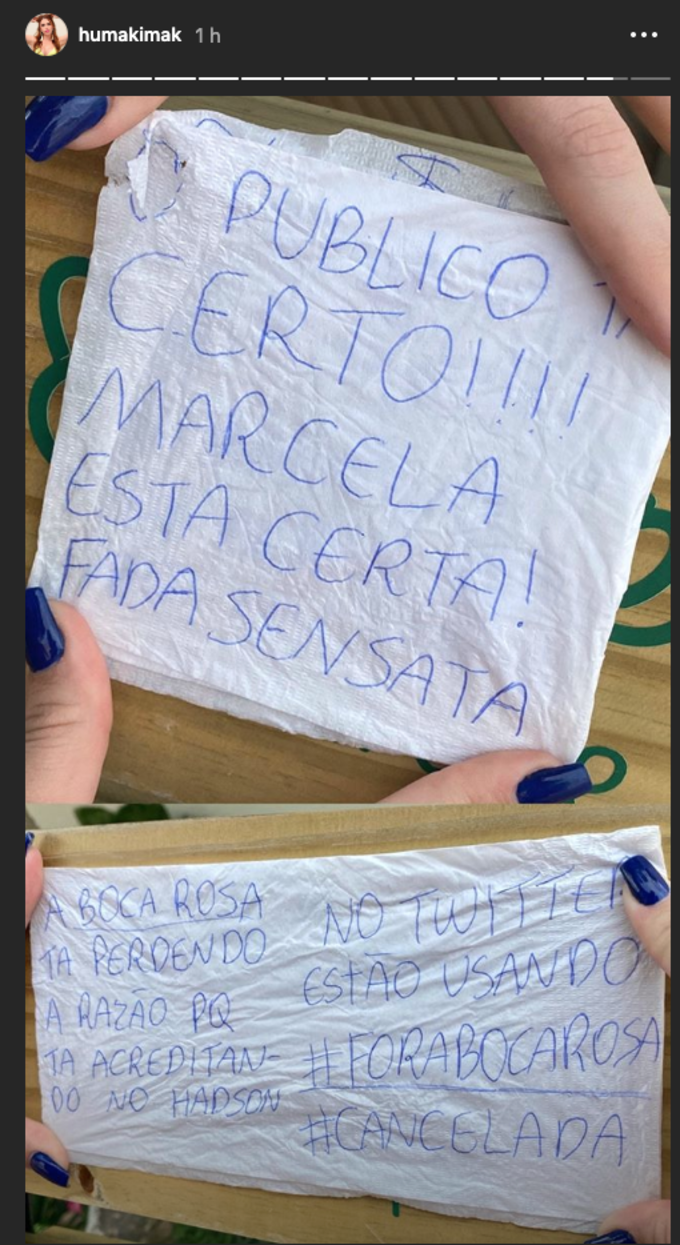 humakimak 1 h
O PUBLICO
CERTO!!!!
MARCELA
ESTA CERTA!
FADA SENSATA
A BOCA ROSA
TA PERDENDO
A RAZÃO PQ
TA ACREDITAN-
DO NO HADSON
NO TWITTER
ESTÃO USANDO
#FORABOCAROSA
#CANCELADA